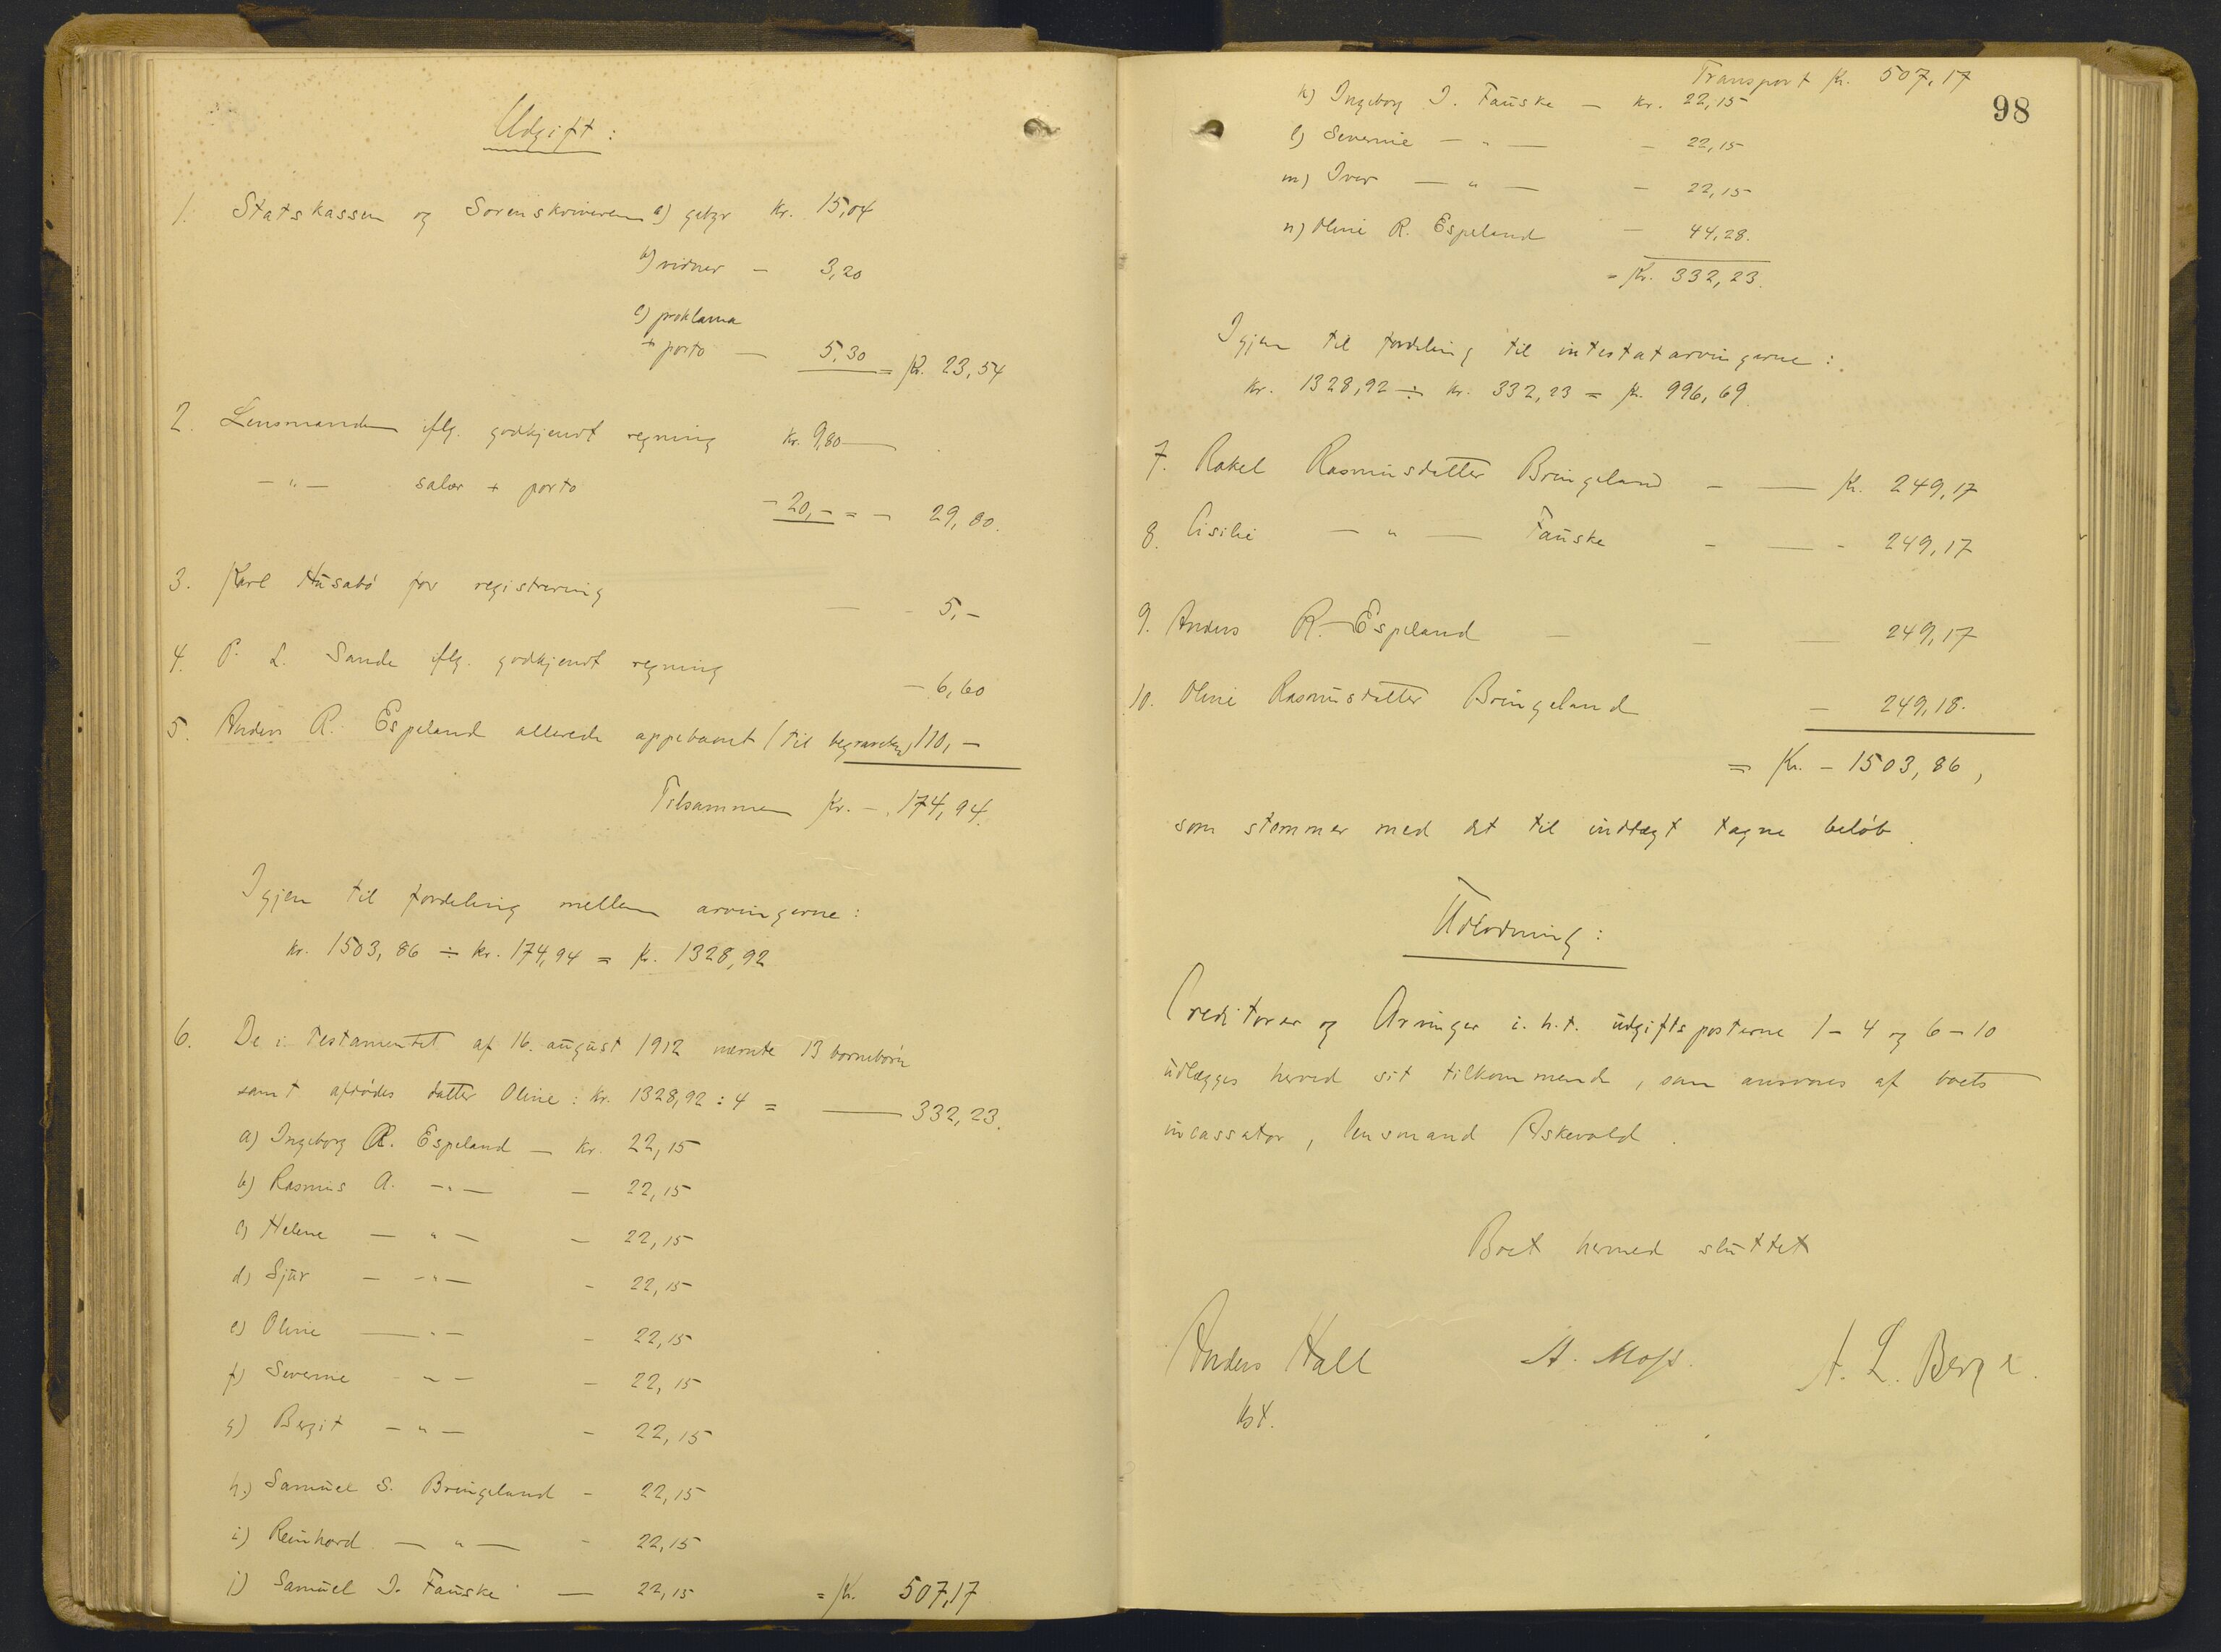 Udgift:
1. Statskassen og Sorenskriveren a) gebyr kr. 15,04
b) vidner - 3,20
c) proklama
+ porto — 5,30 = Kr. 23,54
2. Lensmanden iflg. godkjendt regning kr. 9,80 —
—"— salær + porto - 20,- = - 29,80.
3. Karl Húsabö for registrering — - 5,-
4. P. L. Sande iflg. godkjendt regning - 6,60
5. Anders R. Espeland allerede oppebaaret (til begravelse) 110,-
Tilsammen Kr. - 174,94.
Igjen til fordeling mellem arvingerne:
kr. 1503,86 ÷ kr. 174,94 = kr. 1328,92
6. De i testamentet af 16. august 1912 nævnte 13 barnebörn
samt afdödes datter Oline: kr. 1328,92 : 4 = — 332,23.
a) Ingeborg A. Espeland — kr. 22,15
b) Rasmus A. —"— - 22,15
c) Helene — " — - 22,15
d) Sjur — —"— - 22,15
e) Oline — " — - 22,15
f) Severine - " — - 22,15
g) Bergit — " — - 22,15
h.) Samuel S. Bringeland - 22,15
i) Reinhard — " — - 22,15
j) Samuel I. Fauske — 22,15 = Kr. 507,17
Transport Kr. 507,17
98
k) Ingeborg I. Fauske — kr. 22,15
l) Severine — " — - 22,15
m) Iver — " — - 22,15
n) Oline R. Espeland - 44,28.
= Kr. 332,23.
Igjen til fordeling til intestatarvingerne:
kr. 1328,92 ÷ kr. 332,23 = kr. 996,69
7. Rakel Rasmusdatter Bringeland - — Kr. 249,17
8. Cisilie — " — Fauske - — - 249,17
9. Anders R. Espeland — - — 249,17
10. Oline Rasmusdatter Bringeland - 249,18.
= Kr. - 1503,86,
som stemmer med det til indtægt tagne belöb.
Udlodning:
Creditorer og Arvinger i. h. t. udgiftsposterne 1-4 og 6-10
udlægges herved sit tilkommende, som ansvares af boets
incassator, lensmand Askevold.
Boet hermed sluttet
Anders Hall A. Moss. A. L. Berge.
kst.